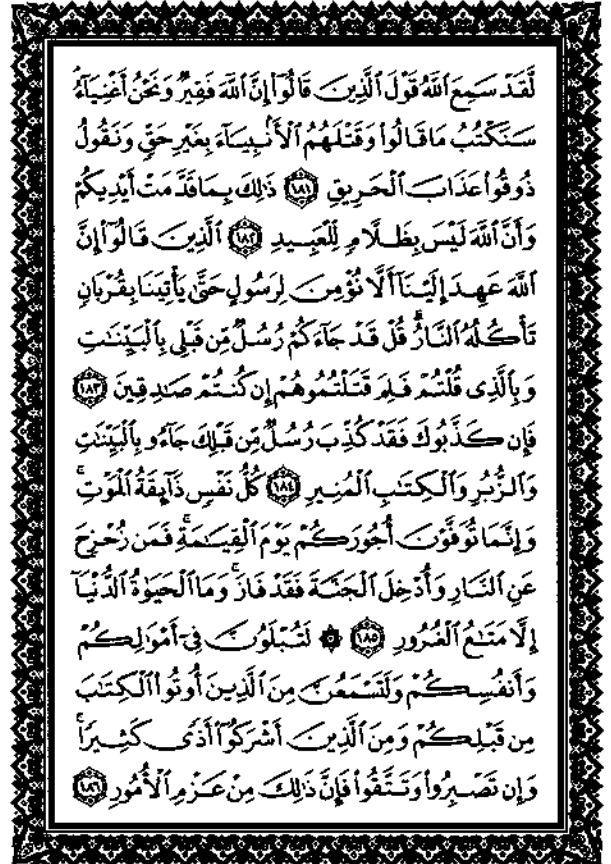 لَّقَدْ سَمِعَ ٱللَّهُ قَوْلَ ٱلَّذِينَ قَالُوٓا۟ إِنَّ ٱللَّهَ فَقِيرٌ وَنَحْنُ أَغْنِيَآءُ
سَنَكْتُبُ مَا قَالُوا۟ وَقَتْلَهُمُ ٱلْأَنۢبِيَآءَ بِغَيْرِ حَقٍّ وَنَقُولُ
ذُوقُوا۟ عَذَابَ ٱلْحَرِيقِ ١٨١ ذَٰلِكَ بِمَا قَدَّمَتْ أَيْدِيكُمْ
وَأَنَّ ٱللَّهَ لَيْسَ بِظَلَّامٍ لِّلْعَبِيدِ ١٨٢ ٱلَّذِينَ قَالُوٓا۟ إِنَّ
ٱللَّهَ عَهِدَ إِلَيْنَآ أَلَّا نُؤْمِنَ لِرَسُولٍ حَتَّىٰ يَأْتِيَنَا بِقُرْبَانٍ
تَأْكُلُهُ ٱلنَّارُ ۗ قُلْ قَدْ جَآءَكُمْ رُسُلٌ مِّن قَبْلِى بِٱلْبَيِّنَٰتِ
وَبِٱلَّذِى قُلْتُمْ فَلِمَ قَتَلْتُمُوهُمْ إِن كُنتُمْ صَٰدِقِينَ ١٨٣
فَإِن كَذَّبُوكَ فَقَدْ كُذِّبَ رُسُلٌ مِّن قَبْلِكَ جَآءُو بِٱلْبَيِّنَٰتِ
وَٱلزُّبُرِ وَٱلْكِتَٰبِ ٱلْمُنِيرِ ١٨٤ كُلُّ نَفْسٍ ذَآئِقَةُ ٱلْمَوْتِ ۗ
وَإِنَّمَا تُوَفَّوْنَ أُجُورَكُمْ يَوْمَ ٱلْقِيَٰمَةِ ۖ فَمَن زُحْزِحَ
عَنِ ٱلنَّارِ وَأُدْخِلَ ٱلْجَنَّةَ فَقَدْ فَازَ ۗ وَمَا ٱلْحَيَوٰةُ ٱلدُّنْيَآ
إِلَّا مَتَٰعُ ٱلْغُرُورِ ١٨٥ ۞ لَتُبْلَوُنَّ فِىٓ أَمْوَٰلِكُمْ
وَأَنفُسِكُمْ وَلَتَسْمَعُنَّ مِنَ ٱلَّذِينَ أُوتُوا۟ ٱلْكِتَٰبَ
مِن قَبْلِكُمْ وَمِنَ ٱلَّذِينَ أَشْرَكُوٓا۟ أَذًى كَثِيرًا ۚ
وَإِن تَصْبِرُوا۟ وَتَتَّقُوا۟ فَإِنَّ ذَٰلِكَ مِنْ عَزْمِ ٱلْأُمُورِ ١٨٦